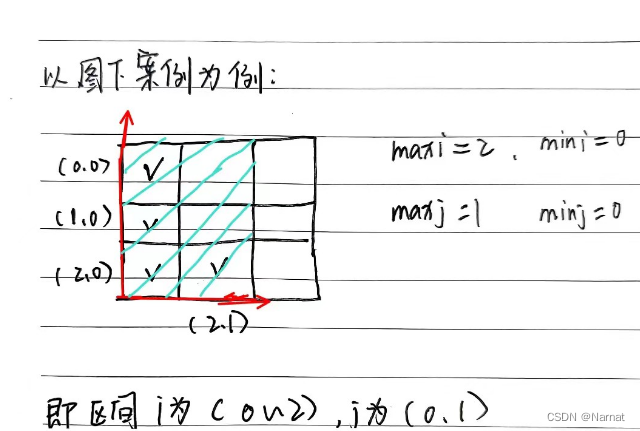 以图下案例为例:
maxi=2. mini=0
(0.0)
(1.0)
maxj=1 minj=0
(2,0)
(2.1)
即区间 i为(0~2),j为(0.1)
CSDN @Narnat